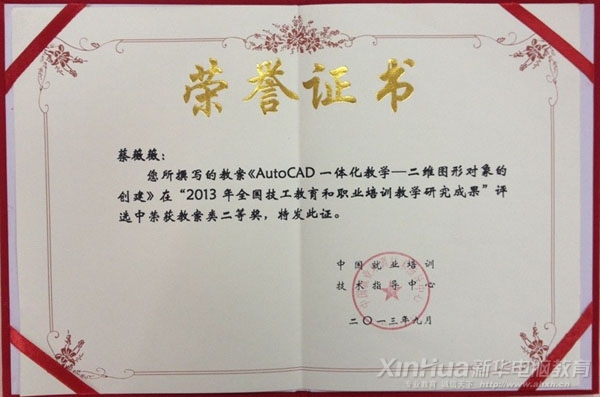 荣誉证书
蔡薇薇：
您所撰写的教案《AutoCAD 一体化教学—二维图形对象的
创建》在“2013 年全国技工教育和职业培训教学研究成果”评
选中荣获教案类二等奖，特发此证。
中国就业培训
技术指导中心
二〇一三年九月
XinHua 新华电脑教育
专业教育 诚信天下 http://www.ahxh.cn